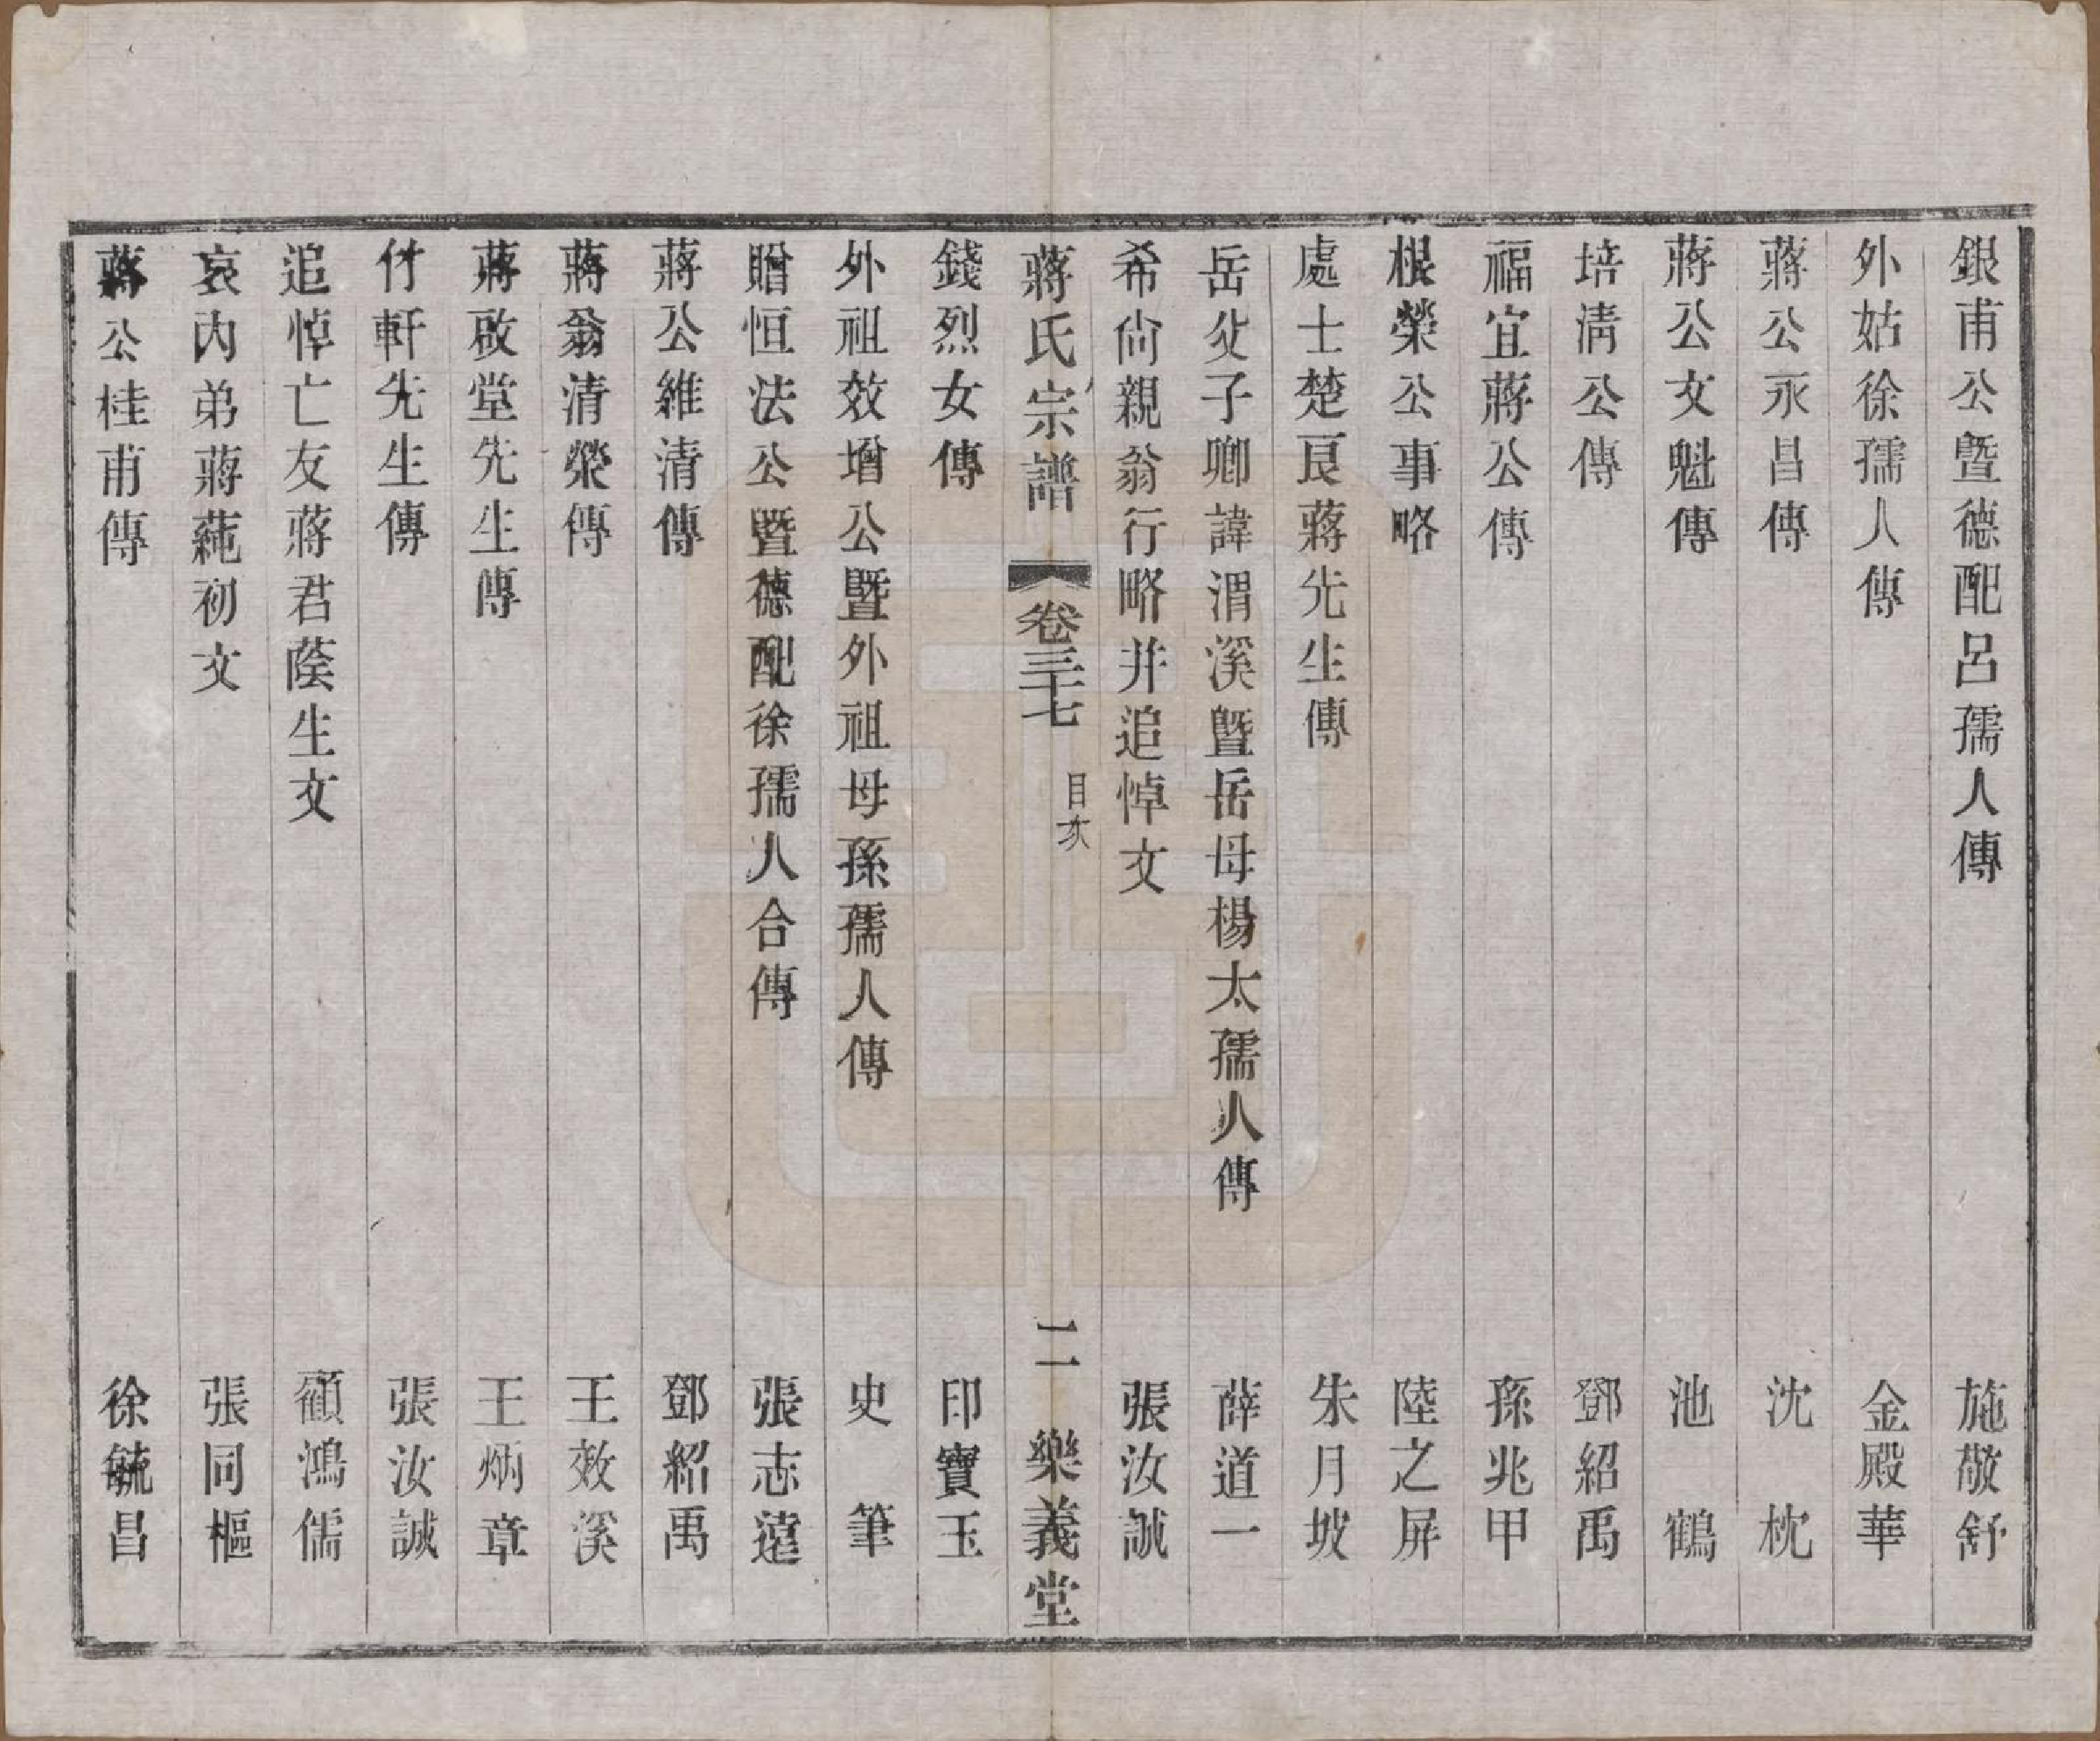 銀甫公暨德配呂孺人傳　施敬舒
外姑徐孺人傳　金殿華
蔣公永昌傳　沈枕
蔣公文魁傳　池鶴
培淸公傳　鄧紹禹
福宜蔣公傳　孫兆甲
根榮公事略　陸之屏
處士楚良蔣先生傳　朱月坡
岳父子卿諱渭溪暨岳母楊太孺人傳　薛道一
希尙親翁行略并追悼文　張汝誠
蔣氏宗譜　卷三十七　目次　二　樂義堂
錢烈女傳　印寶玉
外祖效增公暨外祖母孫孺人傳　史筆
贈恒法公暨德配徐孺人合傳　張志遠
蔣公維清傳　鄧紹禹
蔣翁清榮傳　王效溪
蔣啟堂先生傳　王炳章
竹軒先生傳　張汝誠
追悼亡友蔣君蔭生文　顧鴻儒
哀內弟蔣蒓初文　張同樞
蔣公桂甫傳　徐毓昌